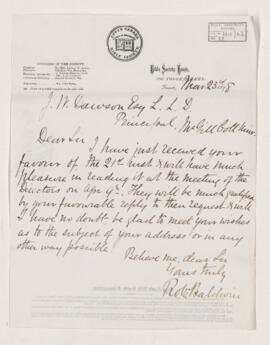 Bible Society House,
Toronto, Mar 23rd /78
J. W. Dawson Esq L.L.D.
Principal, McGill Coll Univ.
Dear Sir I have just received your
favour of the 21st Inst & will have much
pleasure in reading it at the meeting of the
Directors on Apr 9th. They will be much gratified
by your favourable reply to their request & will
I have no doubt be glad to meet your wishes
as to the subject of your address or in any
other way possible.
Believe me, dear Sir
Yours truly
Robt Baldwin